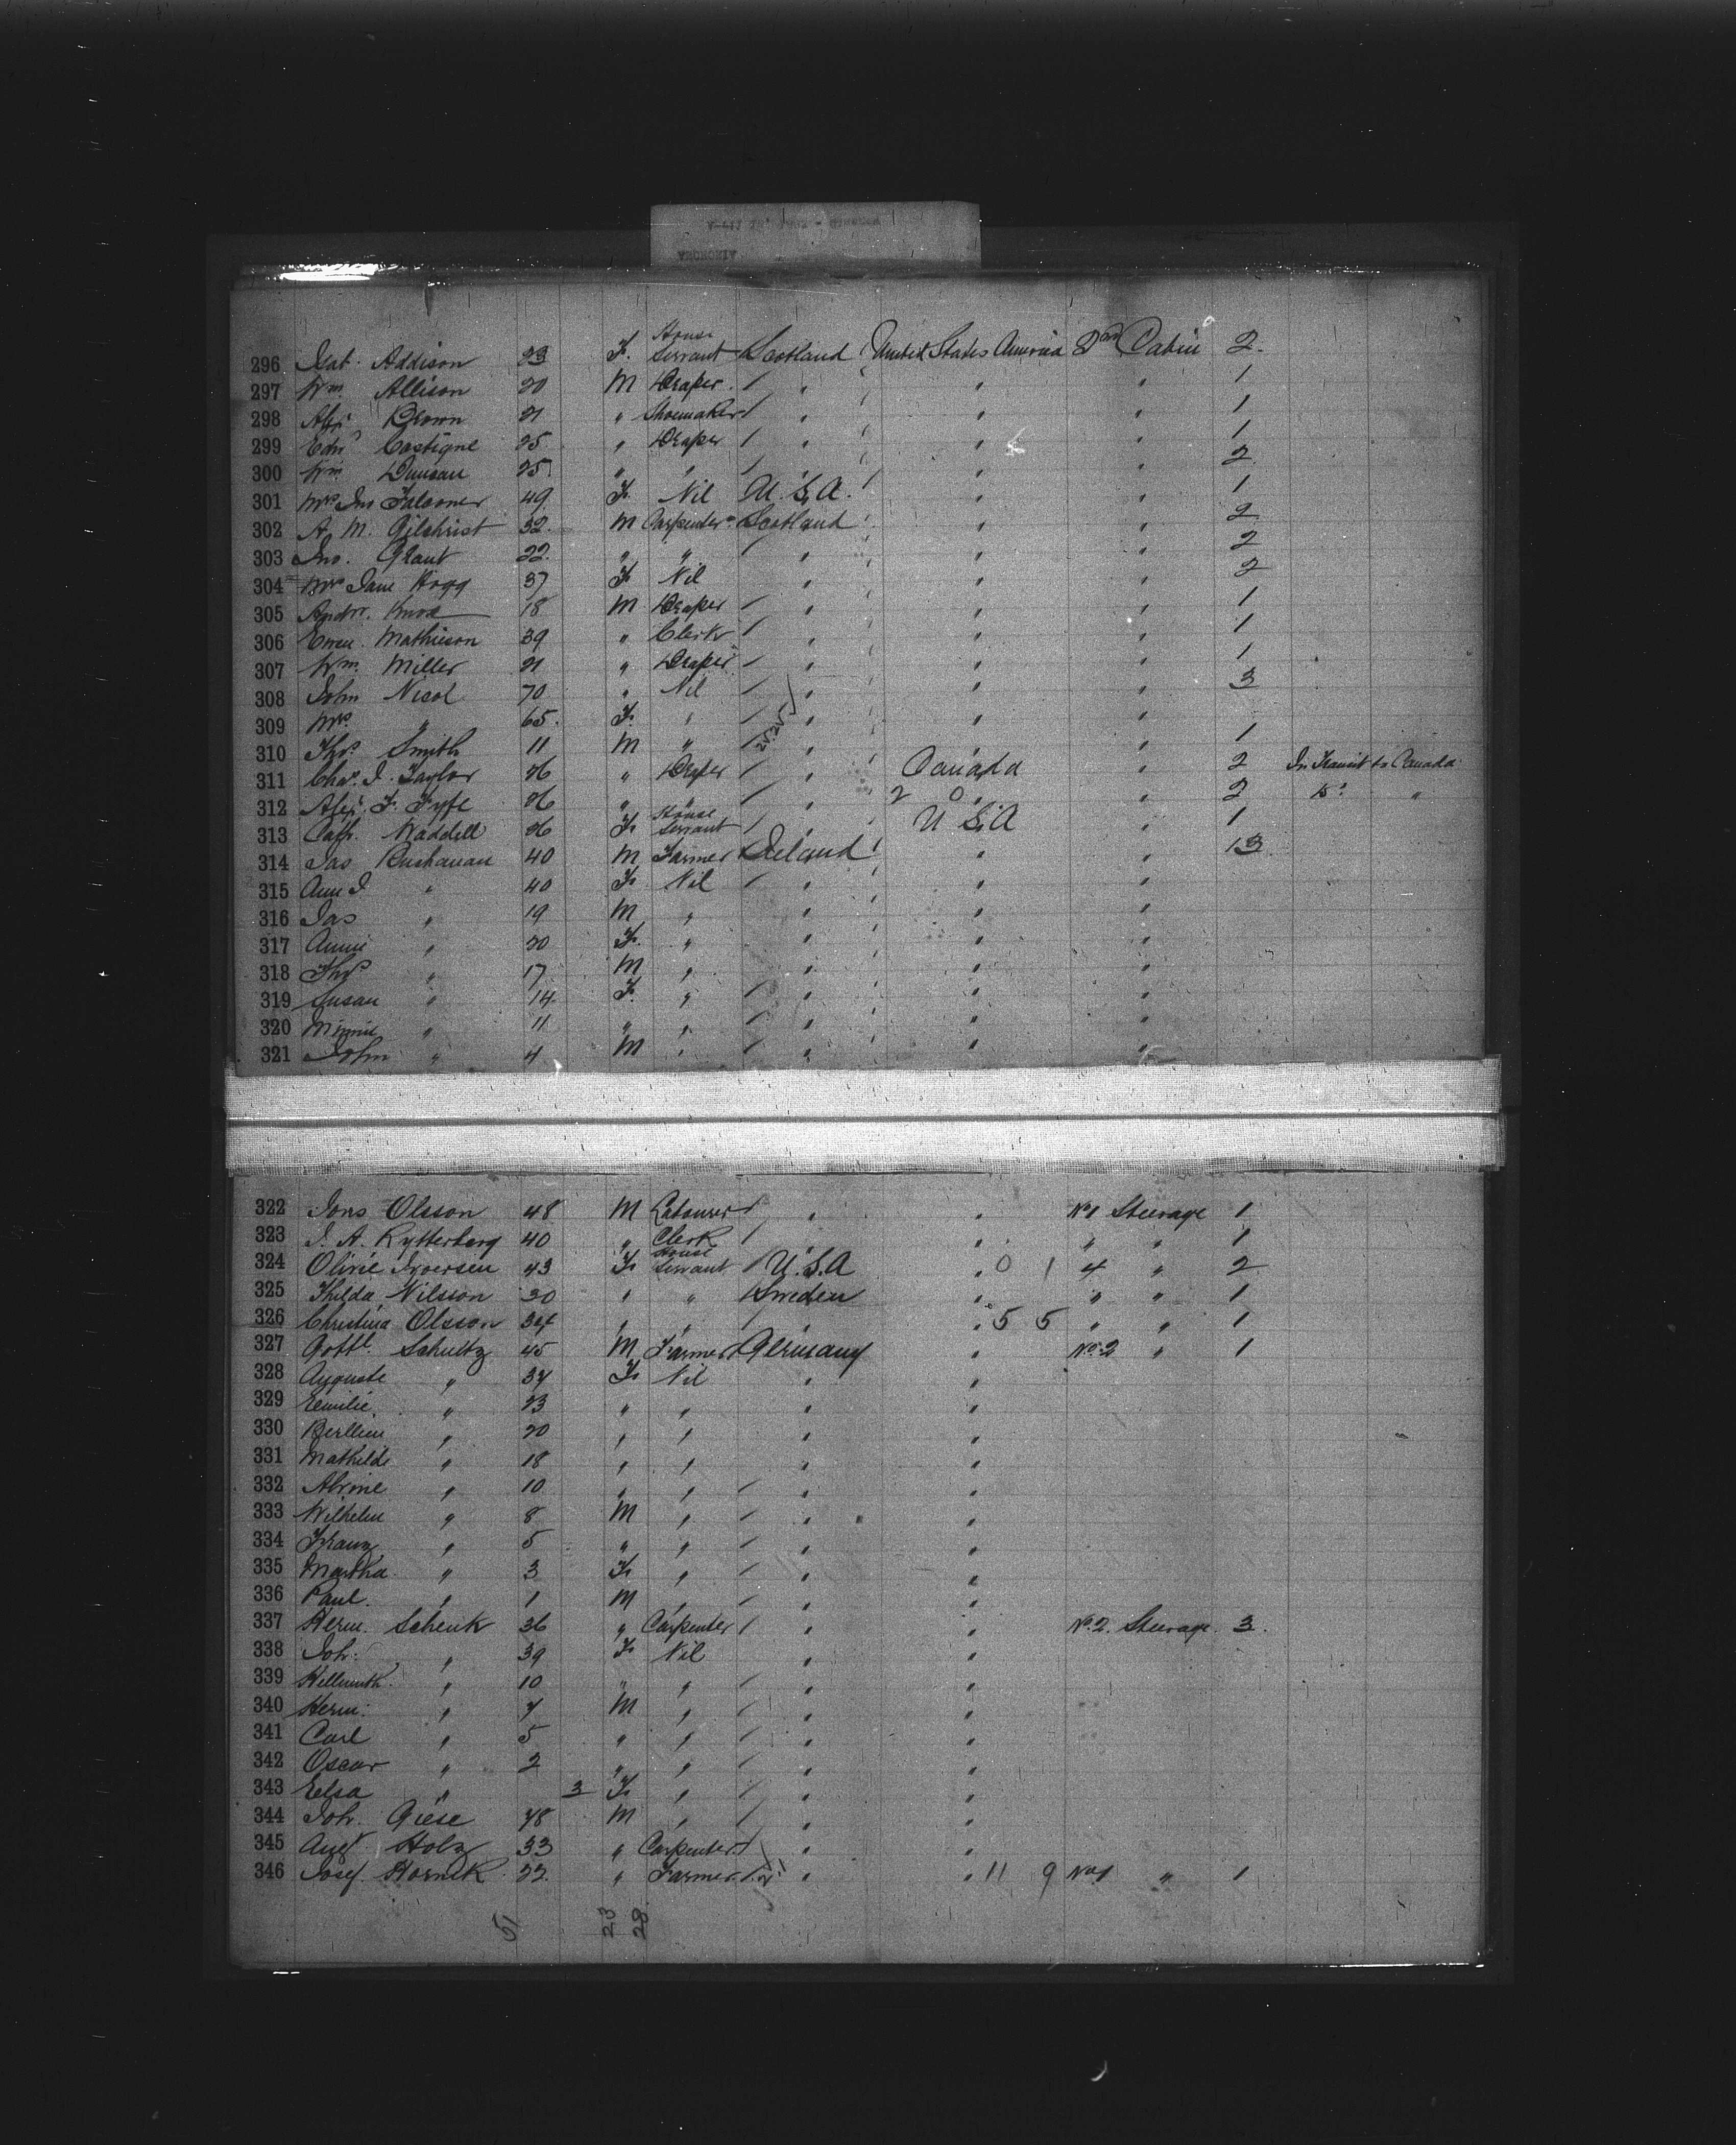 296 Isab. Addison 23 F. House Servant Scotland United States America 2nd Cabin 2.
297 Wm. Allison 20 M Draper " " " 1
298 Alex. Brown 21 " Shoemaker " " " 1
299 Edwd Costigne 25 " Draper " " " 1
300 Wm. Duncan 25 " " " " " 2
301 Mrs Jno Falconer 49 F. Nil U.S.A. " " 1
302 A. M. Gilchrist 32. M Carpenter Scotland " " 2
303 Jno. Grant 22. " " " " " 2
304 Mrs Jane Hogg 37 F Nil " " " 2
305 Andw. Knox 18 M Draper " " " 1
306 Ewen. Mathieson 39 " Clerk " " " 1
307 Wm. Miller 21 " Draper " " " 1
308 John Nicol 70 " Nil " " " 3
309 Mrs. " 65. F. " " " "
310 Thos. Smith 11 M " " " " 1
311 Chas. J. Taylor 26 " Draper " Canada " 2 In Transit to Canada
312 Alex. F. Fyfe 26 " " " 2 0 " " 2 Do "
313 Cath. Waddell 26 F House Servant " U.S.A " 1
314 Jas Buchanan 40 M Farmer Ireland " " 13
315 Ann J " 40 F. Nil " " "
316 Jas " 19 M " " " "
317 Annie " 20 F. " " " "
318 Thos " 17 M " " " "
319 Susan " 14 F. " " " "
320 Minnie " 11 " " " " "
321 John " 4 M " " " "
322 Jons Olsson 48 M Labourer " " No1 Steerage 1
323 J. A. Rytterberg 40 " Clerk " " " " 1
324 Olivie Iversen 43 F. House Servant U.S.A " 0 1 4 " 2
325 Thilda Nilsson 20 " " Sweden " " " 1
326 Christina Olsson 34 " " " " 5 5 " " 1
327 Gottl. Schultz 45 M Farmer Germany " No.2 " 1
328 Auguste " 37 F. Nil " "
329 Emilie " 23 " " " "
330 " 20 " " " "
331 Mathilde " 18 " " " "
332 " 10 " " " "
333 Wilhelm " 8 M " " "
334 Franz " 5 " " " "
335 Martha " 3 F. " " "
336 Paul. " 1 M " " "
337 Herm. Schenk 36 " Carpenter " " No.2. Steerage. 3.
338 Joh. " 39 F. Nil " "
339 Hellmuth. " 10 " " " "
340 Herm. " 7 M " " "
341 Carl " 5 " " " "
342 Oscar " 2 " " " "
343 Elsa " 3 F. " " "
344 Joh. Giese 48 M " " "
345 Augt Holz 33 " Carpenter " "
346 Josef Hornek 22. " Farmer " " 11 9 No1 " 1
51 23 28